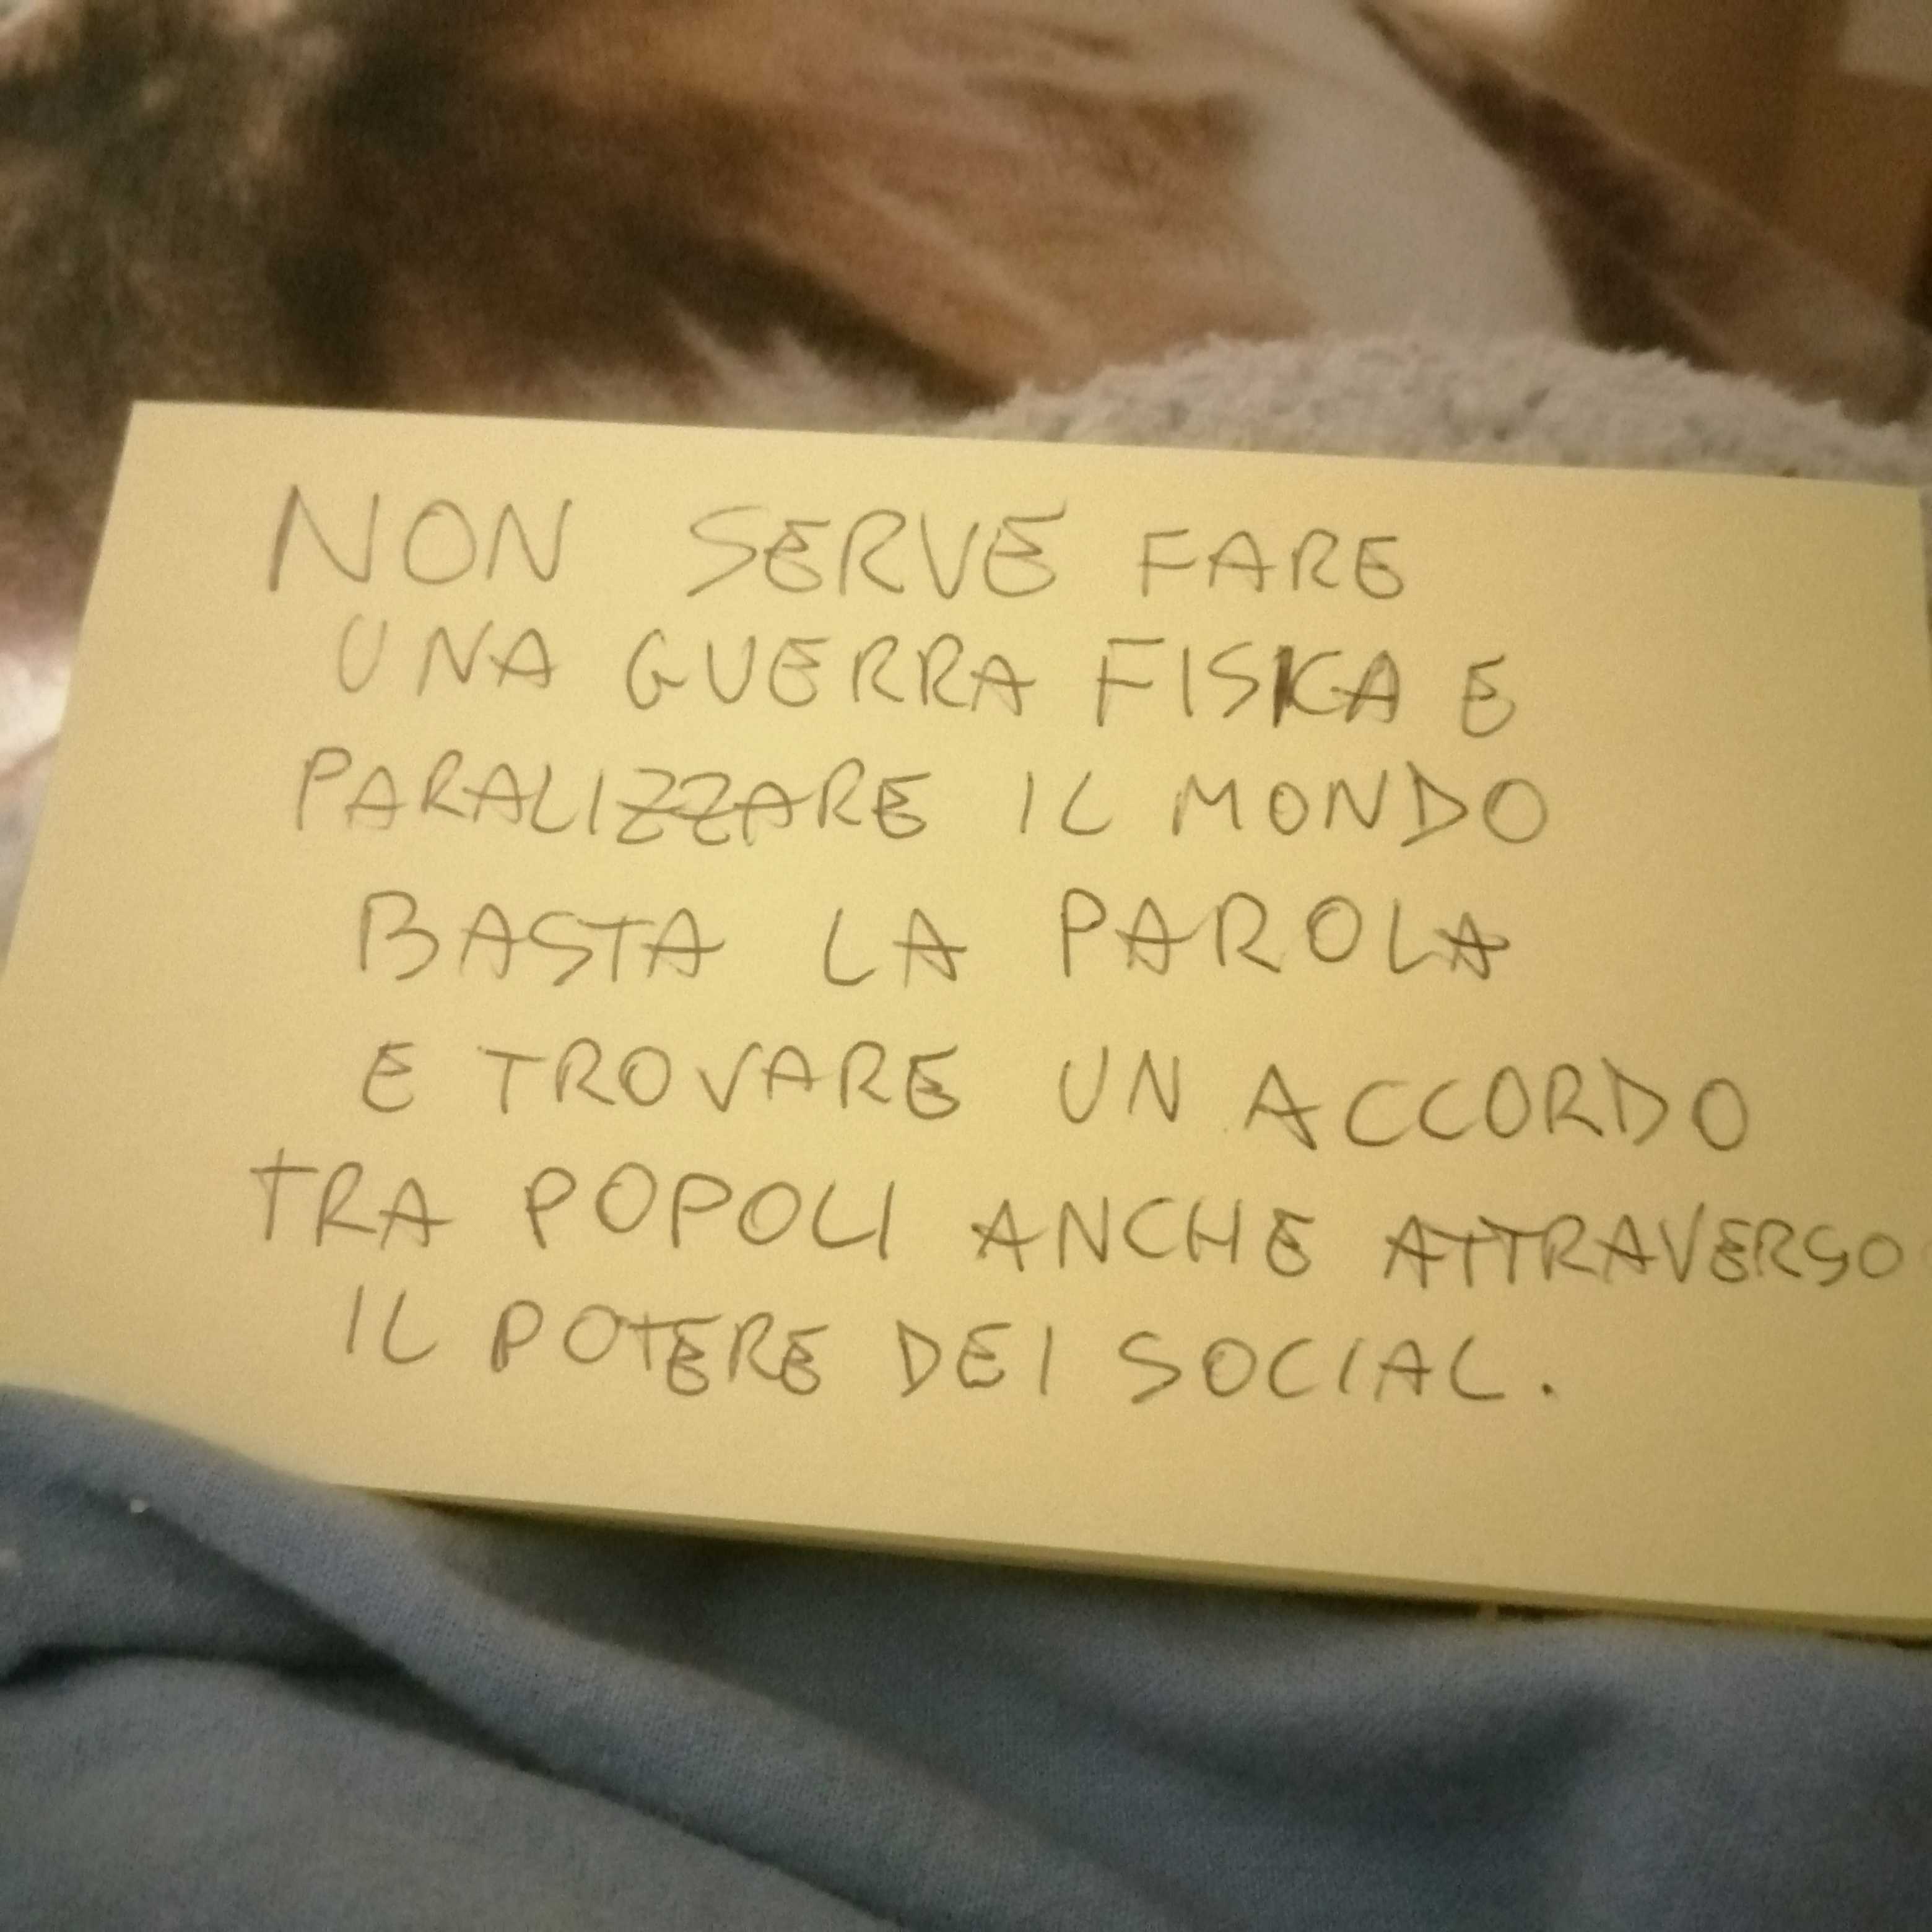 NON SERVE FARE
UNA GUERRA FISICA E
PARALIZZARE IL MONDO
BASTA LA PAROLA
E TROVARE UN ACCORDO
TRA POPOLI ANCHE ATTRAVERSO
IL POTERE DEI SOCIAL.